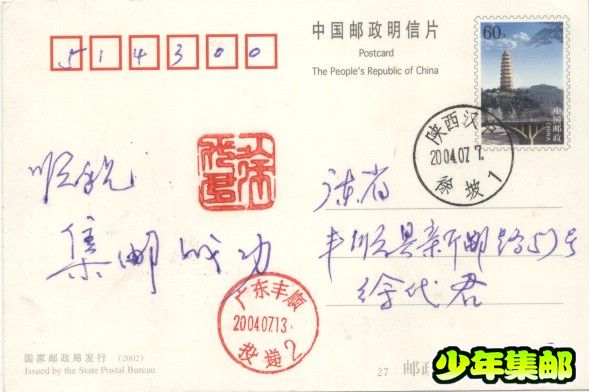 514300
中国邮政明信片
Postcard
The People's Republic of China
60分
中国邮政
CHINA
陕西汉
2004.07 7.
坡 1
顺祝
集邮成功
广东省
丰顺县新邮路51号
徐代君
广东丰顺
2004.0713
投递2
国家邮政局发行 (2002)
Issued by the State Postal Bureau
27
邮政
少年集邮